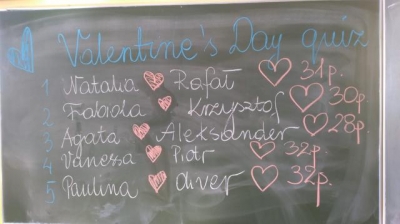 Valentine's Day quiz
1 Natalia Rafał 31p.
2 Fabiola Krzysztof 30p.
3 Agata Aleksander 28p.
4 Vanessa Piotr 32p.
5 Paulina Oliver 32p.